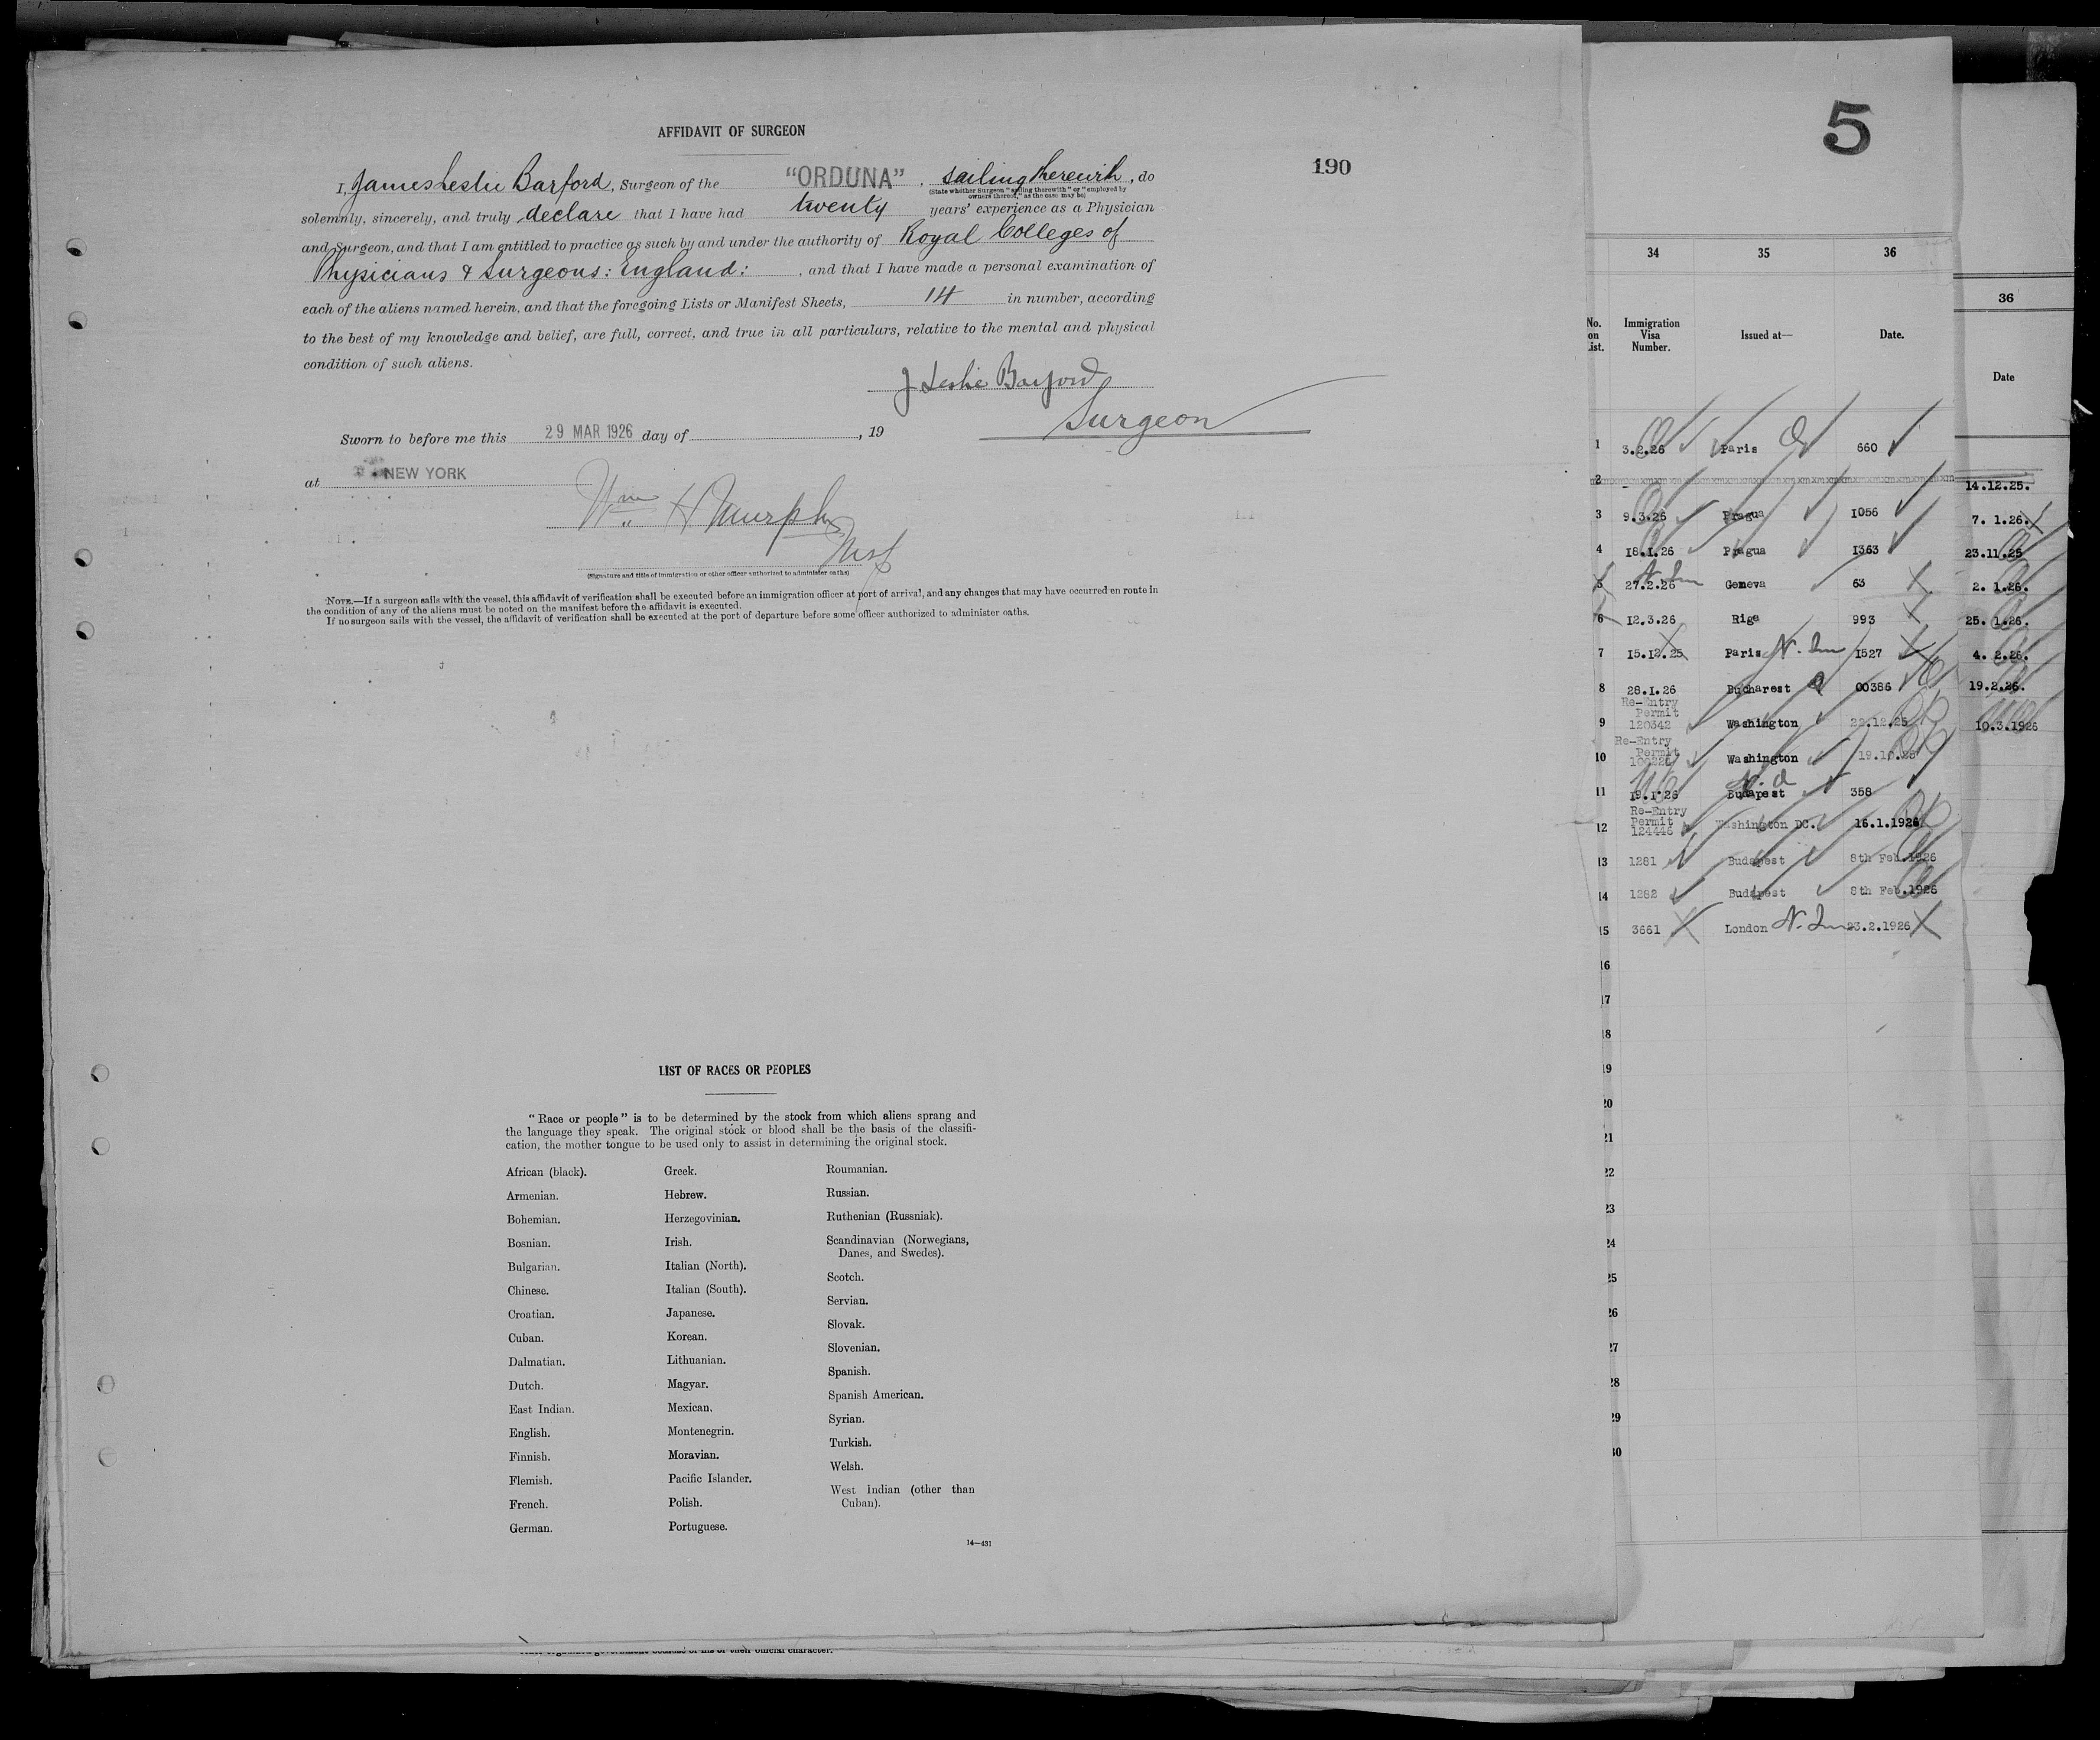 AFFIDAVIT OF SURGEON
190
I, James Leslie Barford, Surgeon of the "ORDUNA", sailing therewith, do
(State whether Surgeon "sailing therewith" or "employed by
owners thereof," as the case may be)
solemnly, sincerely, and truly declare that I have had twenty years' experience as a Physician
and Surgeon, and that I am entitled to practice as such by and under the authority of Royal Colleges of
Physicians & Surgeons: England: , and that I have made a personal examination of
each of the aliens named herein, and that the foregoing Lists or Manifest Sheets, 14 in number, according
to the best of my knowledge and belief, are full, correct, and true in all particulars, relative to the mental and physical
condition of such aliens.
J Leslie Barford
Surgeon
Sworn to before me this 29 MAR 1926 day of , 19
at NEW YORK
Wm H Murphy
Insp
(Signature and title of immigration or other officer authorized to administer oaths)
NOTE.—If a surgeon sails with the vessel, this affidavit of verification shall be executed before an immigration officer at port of arrival, and any changes that may have occurred en route in
the condition of any of the aliens must be noted on the manifest before the affidavit is executed.
If no surgeon sails with the vessel, the affidavit of verification shall be executed at the port of departure before some officer authorized to administer oaths.
LIST OF RACES OR PEOPLES
"Race or people" is to be determined by the stock from which aliens sprang and
the language they speak. The original stock or blood shall be the basis of the classifi-
cation, the mother tongue to be used only to assist in determining the original stock.
African (black).
Armenian.
Bohemian.
Bosnian.
Bulgarian.
Chinese.
Croatian.
Cuban.
Dalmatian.
Dutch.
East Indian.
English.
Finnish.
Flemish.
French.
German.
Greek.
Hebrew.
Herzegovinian.
Irish.
Italian (North).
Italian (South).
Japanese.
Korean.
Lithuanian.
Magyar.
Mexican.
Montenegrin.
Moravian.
Pacific Islander.
Polish.
Portuguese.
Roumanian.
Russian.
Ruthenian (Russniak).
Scandinavian (Norwegians,
Danes, and Swedes).
Scotch.
Servian.
Slovak.
Slovenian.
Spanish.
Spanish American.
Syrian.
Turkish.
Welsh.
West Indian (other than
Cuban).
14—431
5
34 35 36
No. on List. Immigration Visa Number. Issued at— Date.
1 3.2.26 Paris 660
2
3 9.3.26 Pragua 1056
4 18.1.26 Pragua 1363
5 27.2.26 Geneva 63
6 12.3.26 Riga 993
7 15.12.25 Paris 1527
8 28.1.26 Bucharest 00386
Re-Entry
Permit
9 120342 Washington 22.12.25
Re-Entry
Permit
10 Washington
11 19.1.26 Budapest 358
Re-Entry
Permit
12 124446 Washington DC. 16.1.1926
13 1281 Budapest 8th Feb.1926
14 1282 Budapest 8th Feb.1926
15 3661 London 23.2.1926
16
17
18
19
20
21
22
23
24
25
26
27
28
29
30
36
Date
14.12.25.
7. 1.26.
23.11.25
2. 1.26.
25. 1.26.
4. 2.26.
19.2.26.
10.3.1926